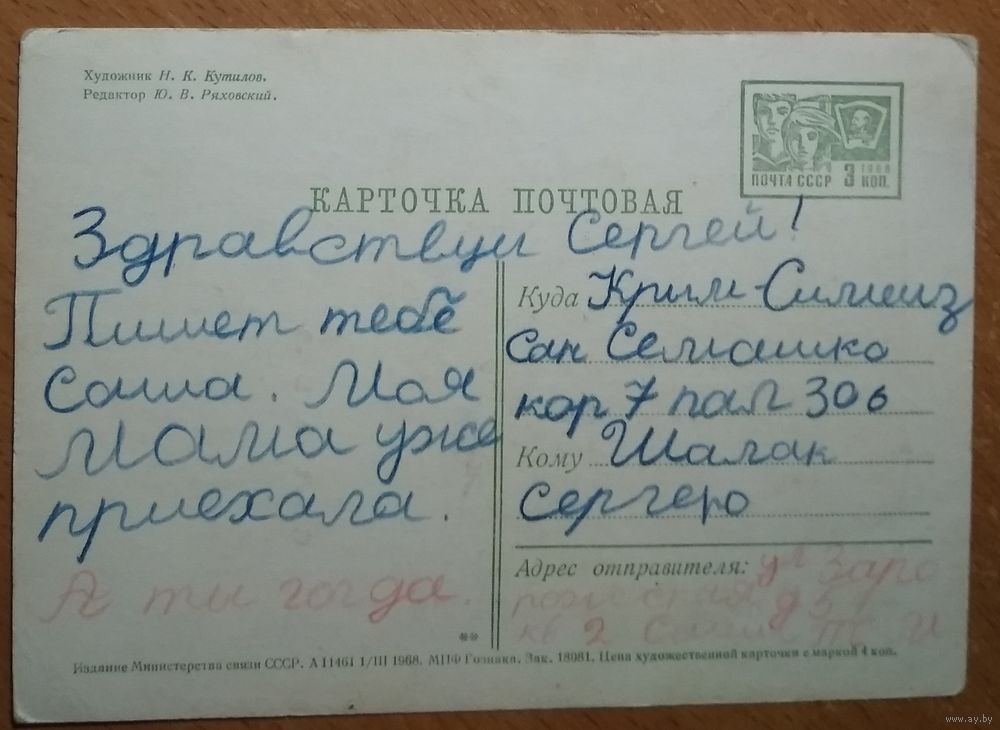 Художник Н. К. Кутилов.
Редактор Ю. В. Ряховский.
1968
ПОЧТА СССР 3 КОП.
КАРТОЧКА ПОЧТОВАЯ
Здравствуи Сергей!
Пишет тебе
Саша. Моя
Мама уже
приехала.
А ты гогда.
Куда Крим-Симеиз
Сан Семашко
кор 7 пал 306
Кому Шалак
Сергею
Адрес отправителя: ул
кв 2 Саша
Издание Министерства связи СССР. А 11461 1/III 1968. МПФ Гознака. Зак. 18081. Цена художественной карточки с маркой 4 коп.
www.ay.by